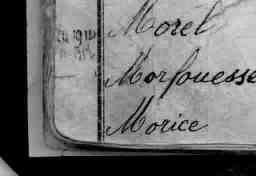 Morel
Morfouesse
Morice